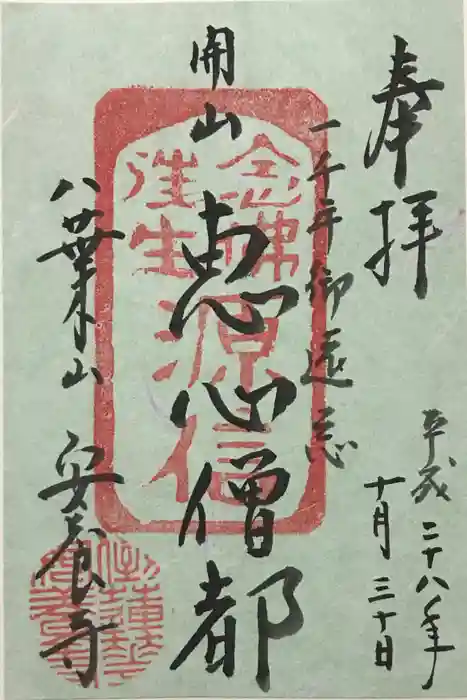 奉拝
平成二十八年
十月三十日
一千年御遠忌
開山 恵心僧都
念佛
往生
源信
八葉山 安養寺